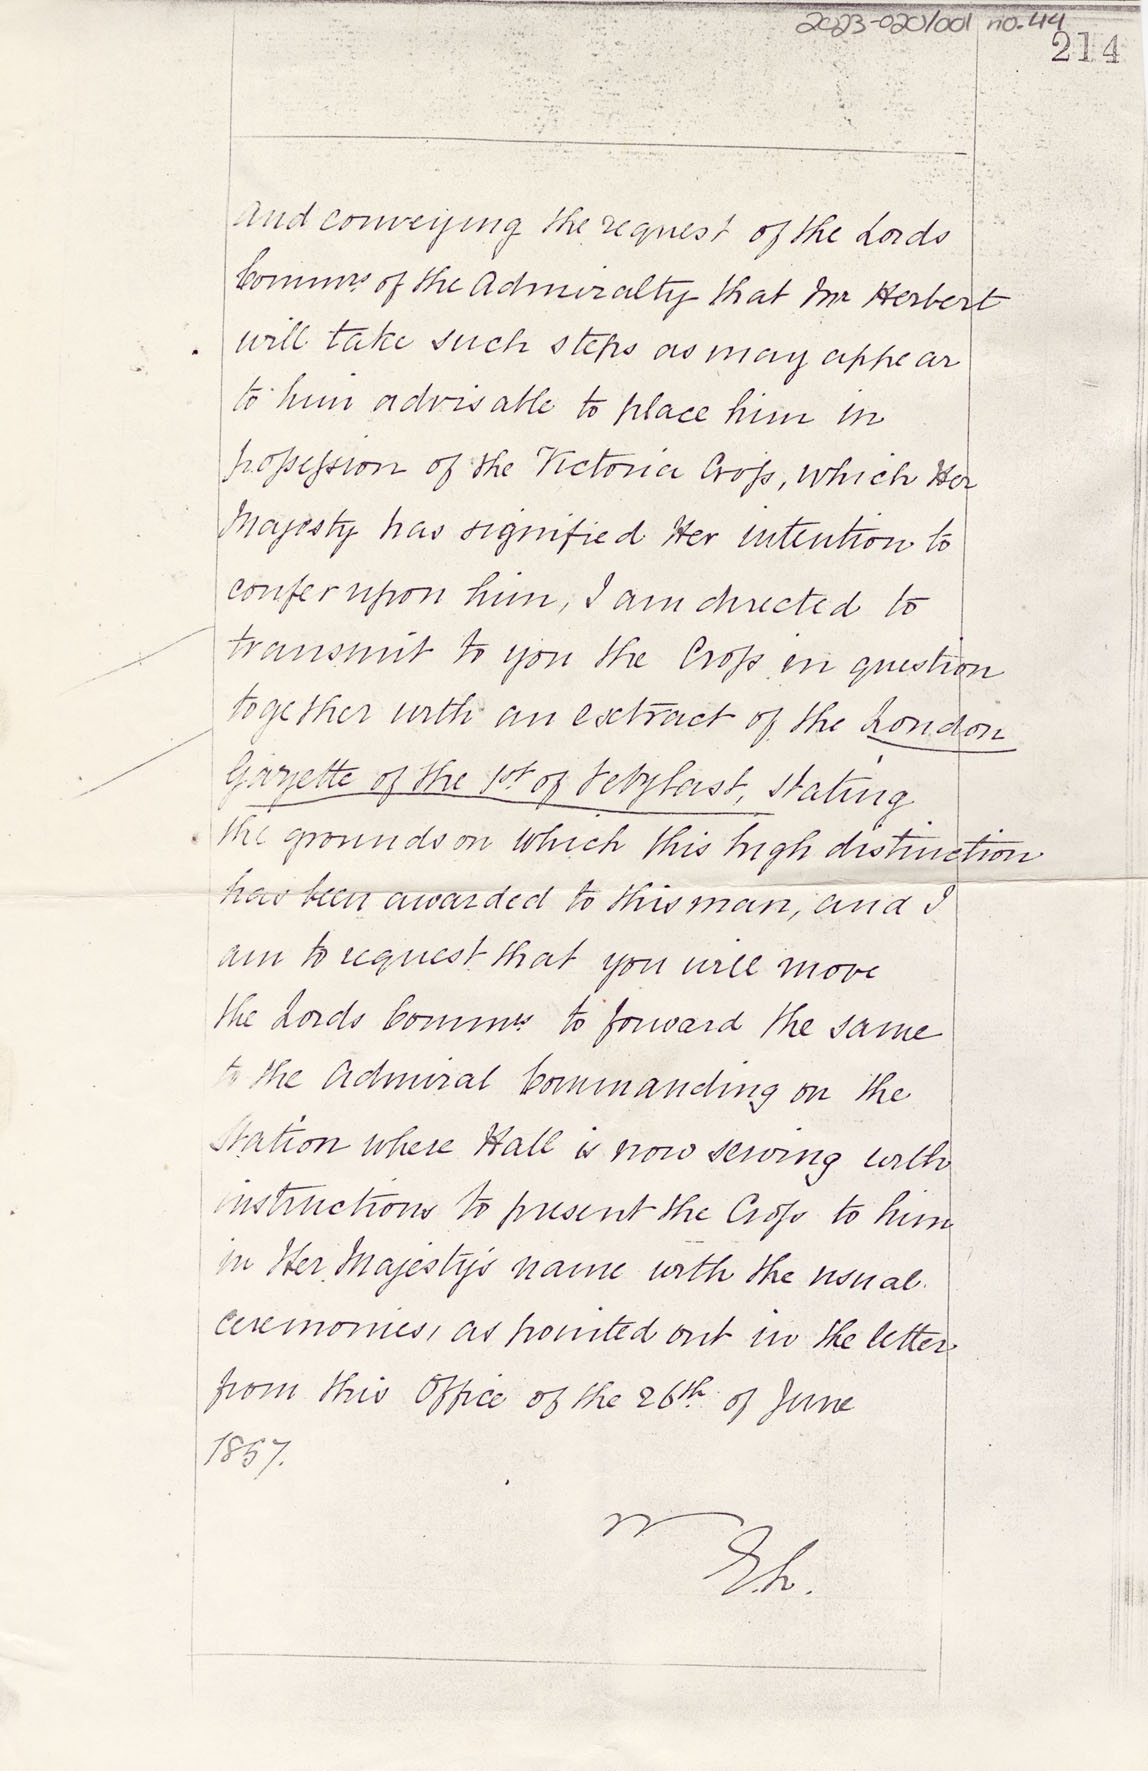 2023-020/001 no. 44
214
and conveying the request of the Lords
Commrs of the Admiralty that Mr Herbert
will take such steps as may appear
to him advisable to place him in
possession of the Victoria Cross, which Her
Majesty has signified Her intention to
confer upon him, I am directed to
transmit to you the Cross in question
together with an extract of the London
Gazette of the 1st of Feby last, stating
the grounds on which this high distinction
has been awarded to this man, and I
am to request that you will move
the Lords Commrs to forward the same
to the Admiral Commanding on the
Station where Hall is now serving with
instructions to present the Cross to him
in Her Majesty's name with the usual
ceremonies, as pointed out in the letter
from this Office of the 26th of June
1857.